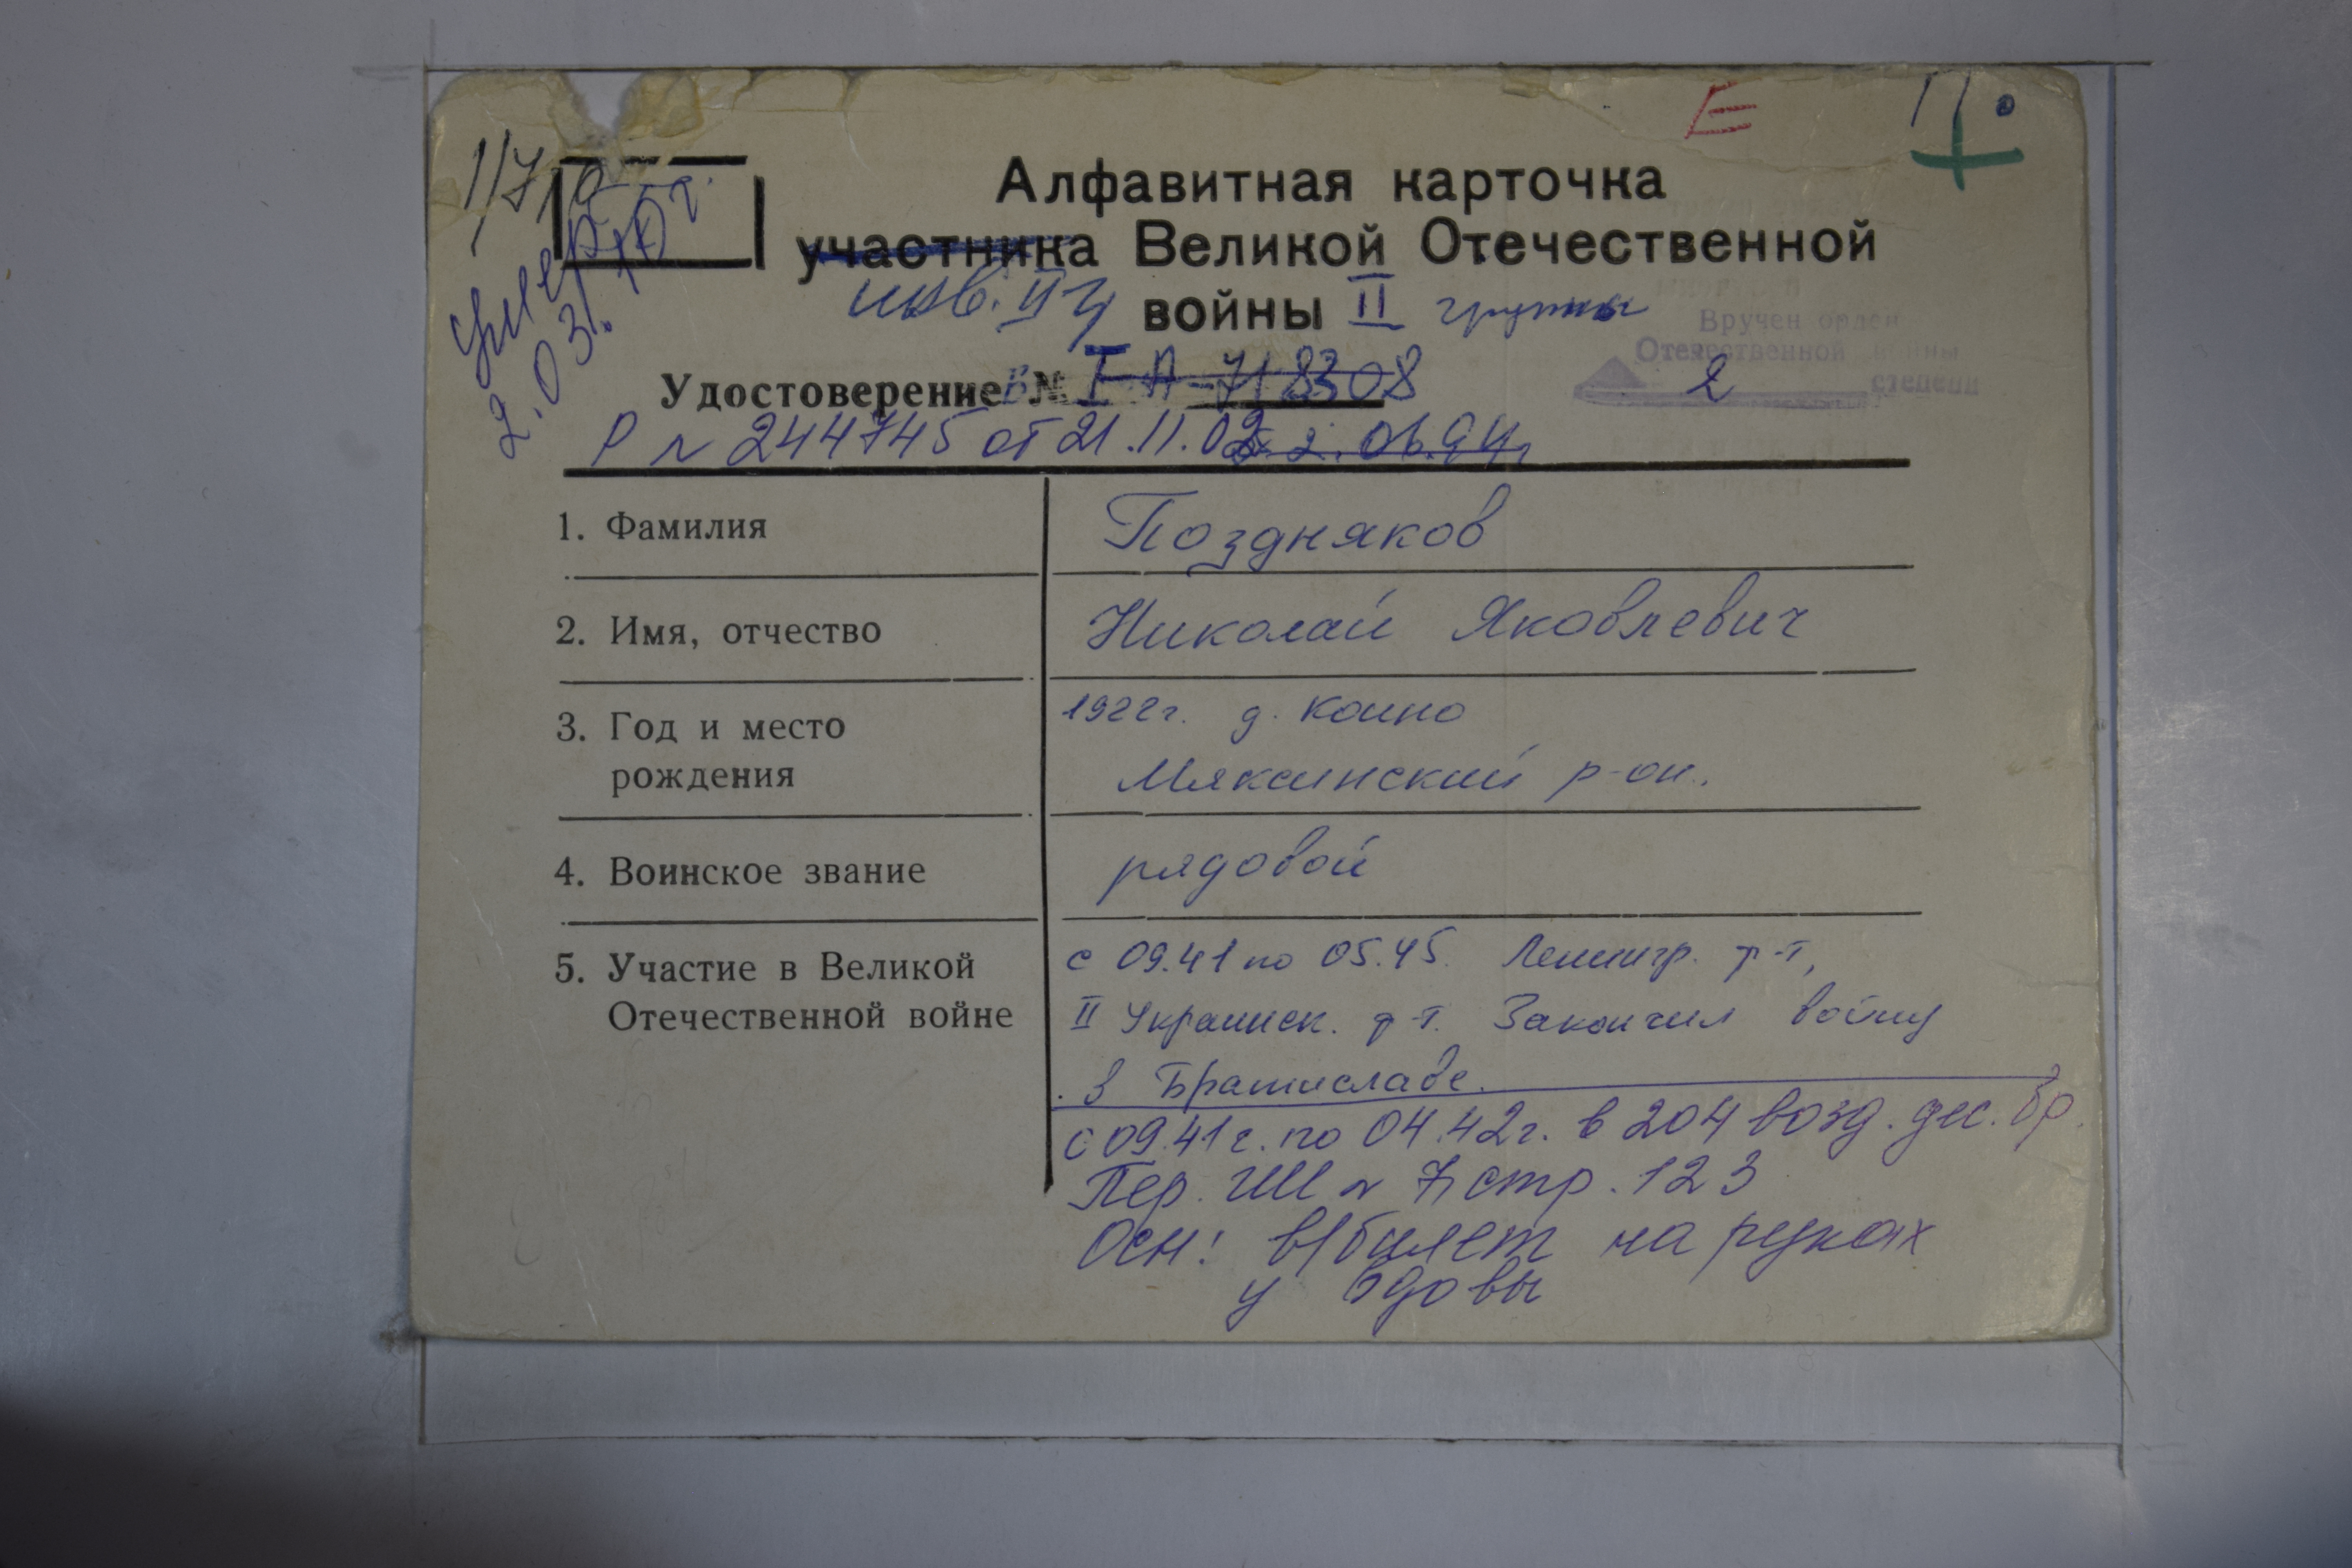 Е
Алфавитная карточка
участника Великой Отечественной
инв. войны II группы
умер
2.03.10 г.
Вручен орден
Отечественной войны
2 степени
Удостоверение №
Р № 244745 от 21.11.02
1. Фамилия Поздняков
2. Имя, отчество Николай Яковлевич
3. Год и место 1922г. д. Коино
рождения Мяксинский р-он.
4. Воинское звание рядовой
5. Участие в Великой с 09.41 по 05.45. Ленингр. ф-т,
Отечественной войне II Украинск. ф-т. Закончил войну
в Братиславе.
с 09.41г. по 04.42г. в 204 возд. дес. бр.
Пер. ГШ № 7 стр. 123
Осн: в/билет на руках
у вдовы